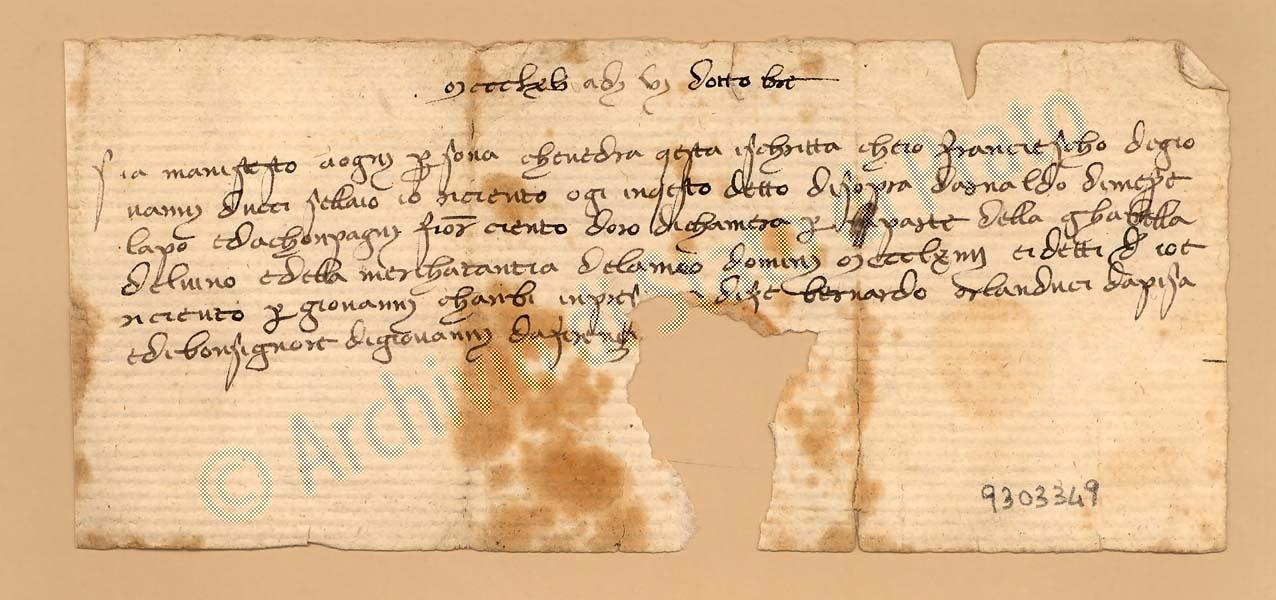 mccclxv adi vj dottobre
Sia manifesto aogni persona chevedra qesta ischritta cheio Franciescho degio
vanni ducci sellaio io riciento ogi inqesto detto disopra darnaldo dimess
lapo edachonpagni fior ciento doro dichamera per parte della ghabella
deluino edella merchatantia delanno domini mccclxiiij eidetti
riciento per giovanni chanbi inpres di bernardo orlanduci dapisa
edibonsignore digiovanni dafirenze
© Archivio di Stato di Prato
9303349